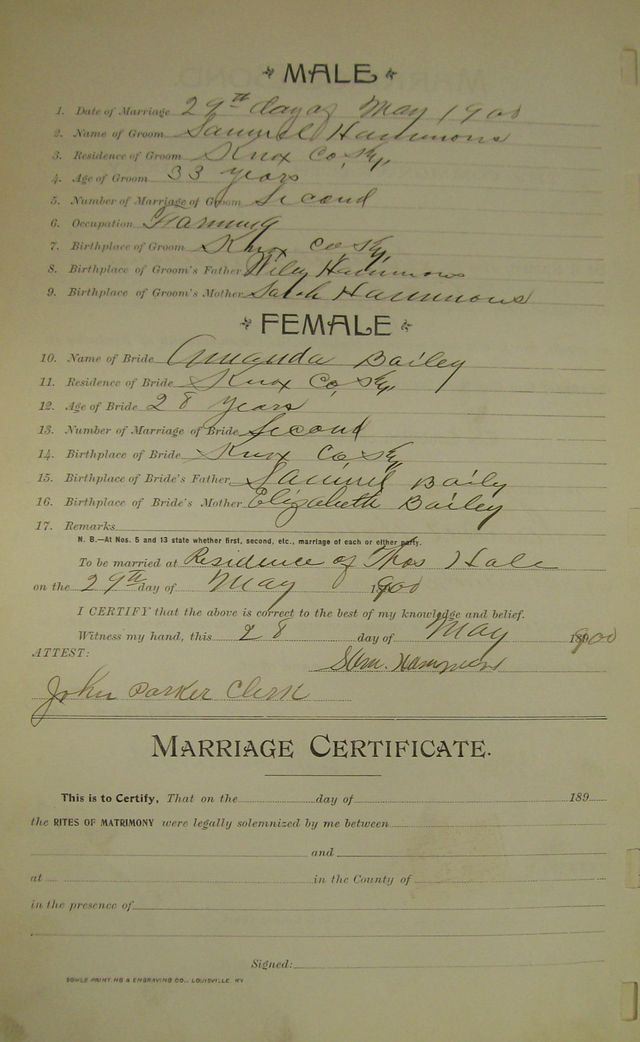 MALE
1. Date of Marriage 29th day of May 1900
2. Name of Groom Samuel Hammons
3. Residence of Groom Knox Co, Ky,
4. Age of Groom 33 years
5. Number of Marriage of Groom Second
6. Occupation Farming
7. Birthplace of Groom Knox Co Ky,
8. Birthplace of Groom's Father Wiley Hammons
9. Birthplace of Groom's Mother Sarah Hammons
FEMALE
10. Name of Bride Amanda Bailey
11. Residence of Bride Knox Co, Ky,
12. Age of Bride 28 years
13. Number of Marriage of Bride Second
14. Birthplace of Bride Knox Co Ky
15. Birthplace of Bride's Father Samuel Baily
16. Birthplace of Bride's Mother Elizabeth Bailey
17. Remarks
N. B.—At Nos. 5 and 13 state whether first, second, etc., marriage of each or either party.
To be married at Residence of Thos Hale
on the 29th day of May 1900
I CERTIFY that the above is correct to the best of my knowledge and belief.
Witness my hand, this 28 day of May 1900
ATTEST:
John Parker Clerk
MARRIAGE CERTIFICATE.
This is to Certify, That on the day of 189
the RITES OF MATRIMONY were legally solemnized by me between
and
at in the County of
in the presence of
Signed:
PRINTING & ENGRAVING CO., LOUISVILLE, KY